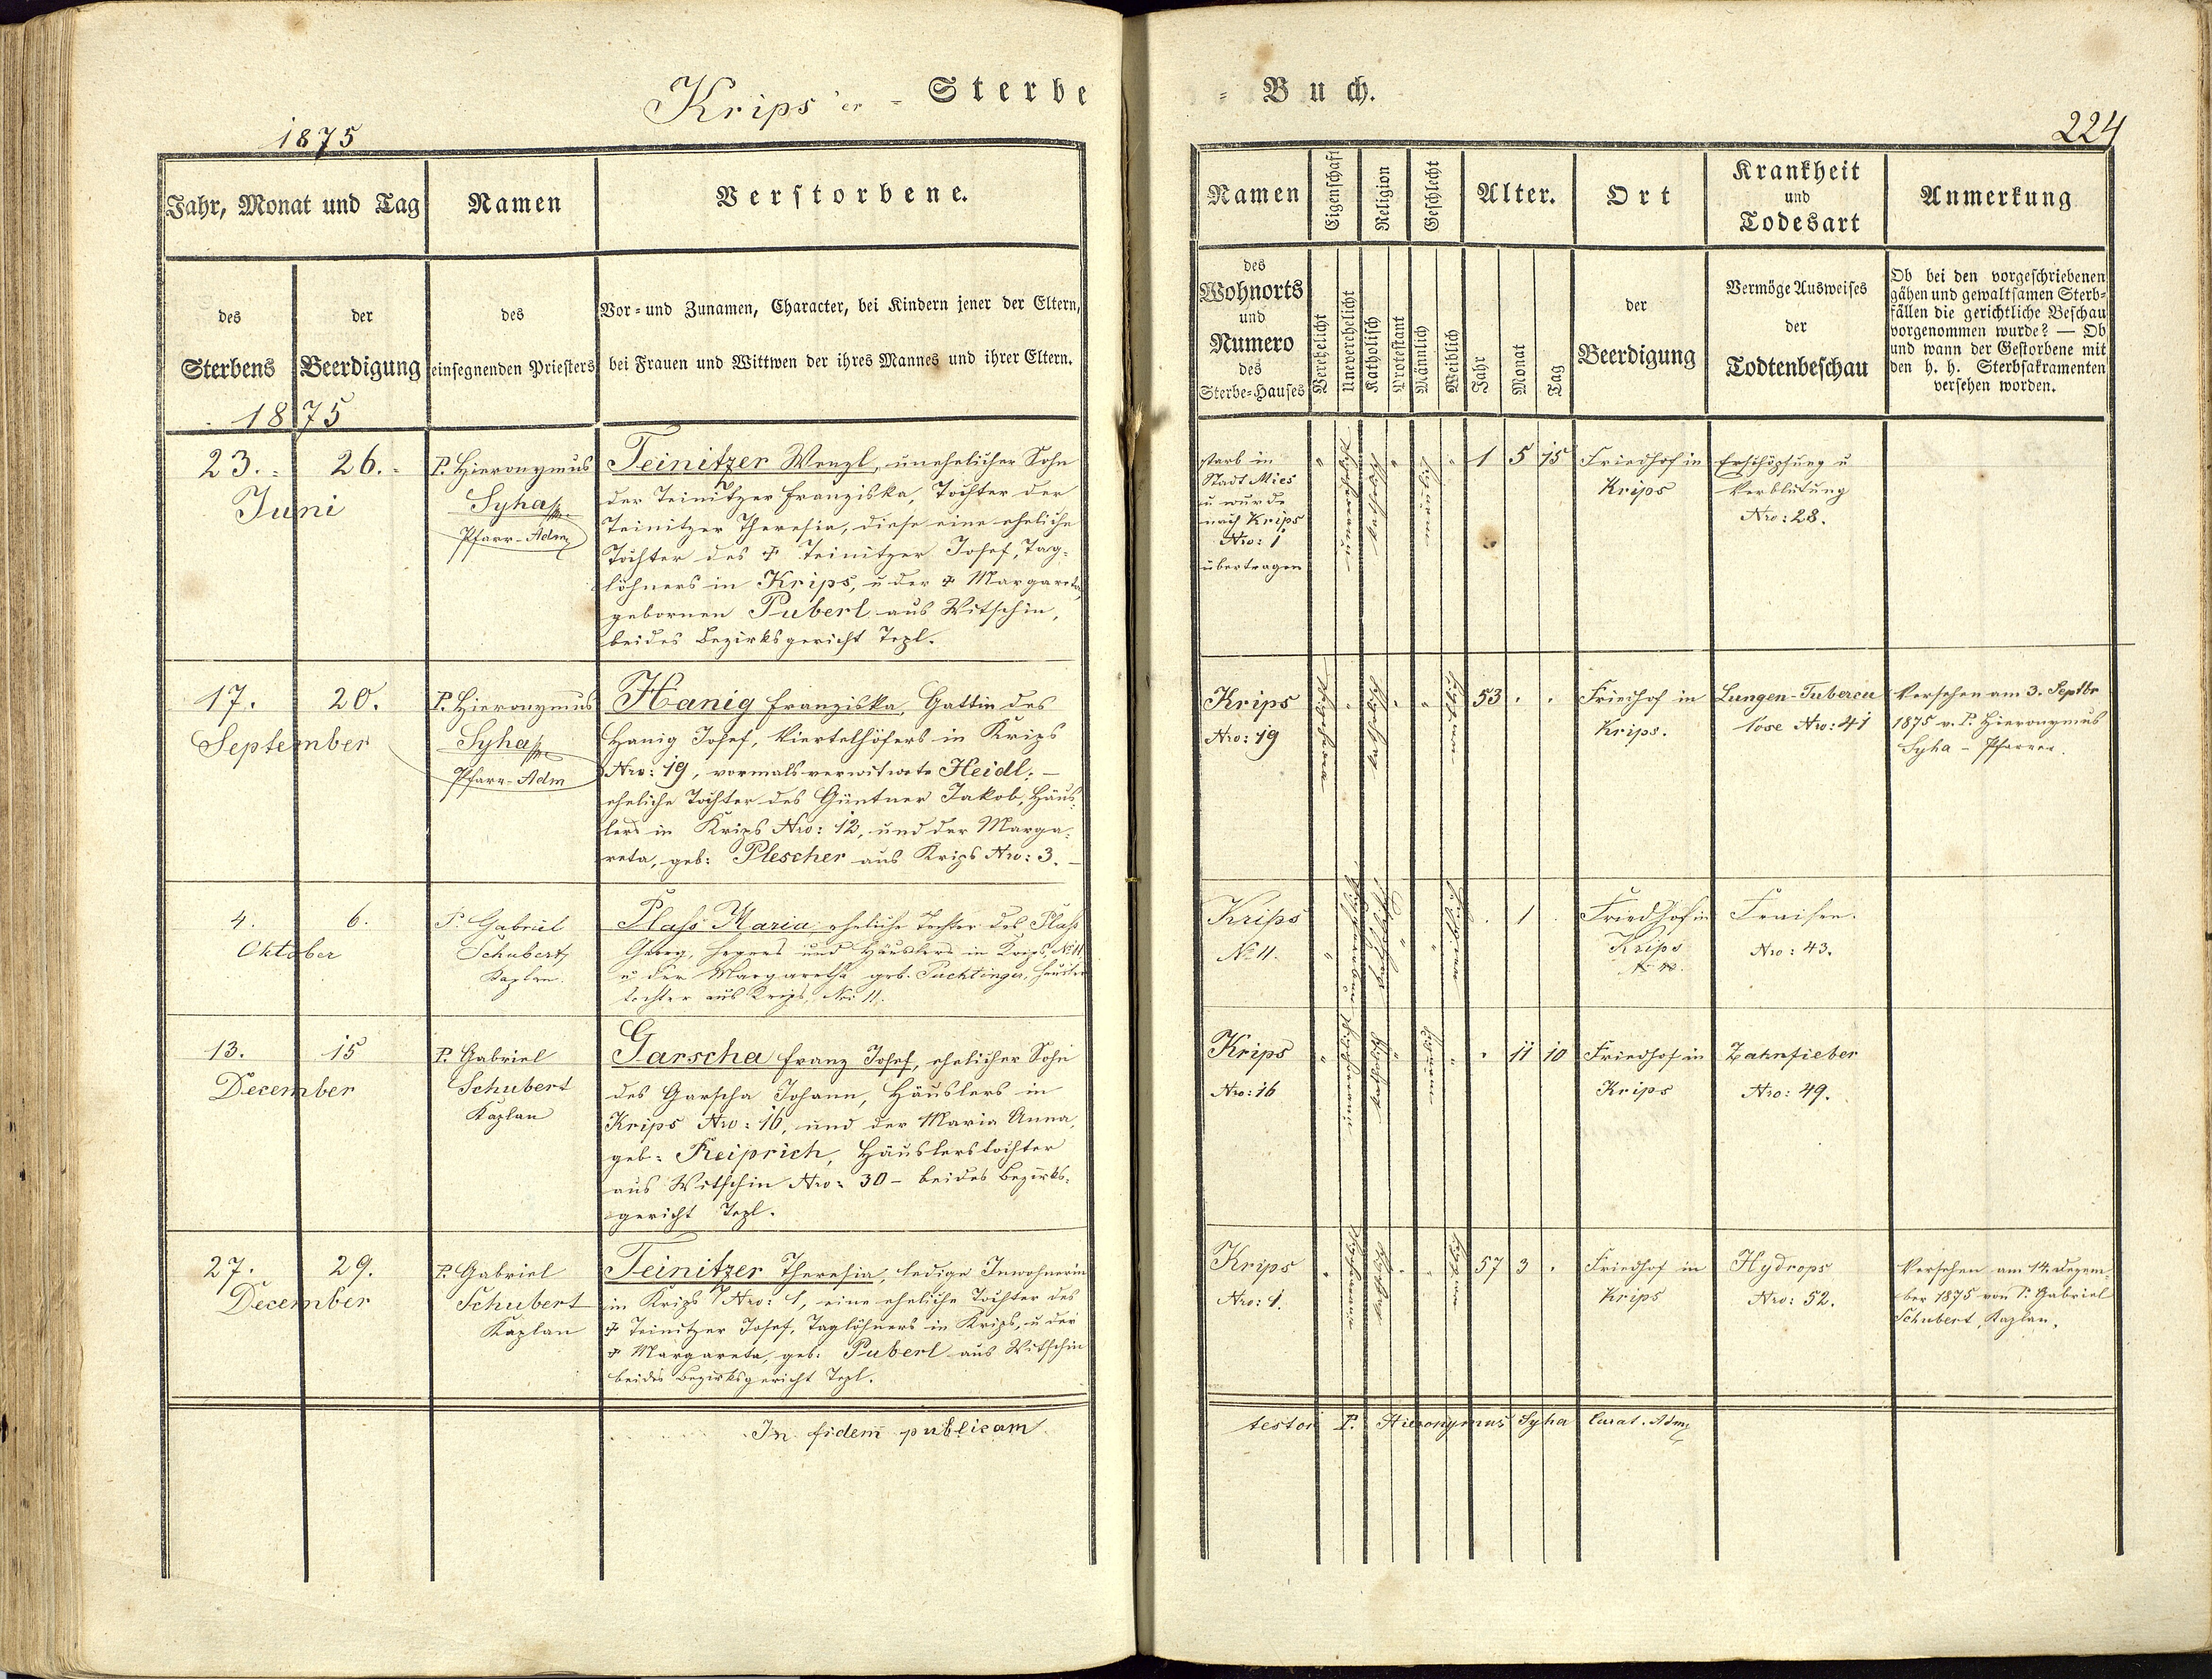 Krips'er = Sterbe
1875
Jahr, Monat und Tag
Namen
Verstorbene.
des
Sterbens
der
Beerdigung
des
einsegnenden Priesters
Vor= und Zunamen, Character, bei Kindern jener der Eltern,
bei Frauen und Wittwen der ihres Mannes und ihrer Eltern.
1875
23. 26.
Juni
P. Hieronymus
Syha
Pfarr-Adm
Teinitzer Wenzl, unehelicher Sohn
der Teinitzer Franziska, Tochter der
Teinitzer Theresia, diese eine eheliche
Tochter des † Teinitzer Josef, Tag=
löhners in Krips, u der † Margareta
gebornen Puberl aus Witschin,
beides Bezirksgericht Tepl.
17. 20.
September
P. Hieronymus
Syha
Pfarr-Adm
Hanig Franziska, Gattin des
Hanig Josef, Viertelhöfers in Krips
Nro: 19, vormals verwitwete Heidl; –
eheliche Tochter des Güntner Jakob, Häus=
lers in Krips Nro: 12, und der Marga=
reta, geb: Plescher aus Krips Nro: 3. –
4. 6.
Oktober
P. Gabriel
Schubert
Kaplan.
Plass Maria, eheliche Tochter des Plass
Georg, Hegers und Häuslers in Krips, No 11
u. der Margaretha geb. Puchtinger, Häusler
tochter aus Krips, No 11.
13. 15
December
P. Gabriel
Schubert
Kaplan
Garscha Franz Josef, ehelicher Sohn
des Garscha Johann, Häuslers in
Krips Nro: 16, und der Maria Anna,
geb: Reiprich, Häuslerstochter
aus Witschin Nro: 30 – beides Bezirks=
gericht Tepl.
27. 29.
December
P. Gabriel
Schubert
Kaplan
Teinitzer Theresia, ledige Inwohnerin
in Krips Nro: 1, eine eheliche Tochter des
† Teinitzer Josef, Taglöhners in Krips, u der
† Margareta, geb: Puberl aus Witschin
beides Bezirksgericht Tepl.
In fidem publicam
= Buch.
224
Namen
Eigenschaft
Religion
Geschlecht
Alter.
Ort
Krankheit
und
Todesart
Anmerkung
des
Wohnorts
und
Numero
des
Sterbe=Hauses
Verehelicht
Unverehelicht
Katholisch
Protestant
Männlich
Weiblich
Jahr
Monat
Tag
der
Beerdigung
Vermöge Ausweises
der
Todtenbeschau
Ob bei den vorgeschriebenen
gähen und gewaltsamen Sterb=
fällen die gerichtliche Beschau
vorgenommen wurde? — Ob
und wann der Gestorbene mit
den h. h. Sterbsakramenten
versehen worden.
starb in
Stadt Mies
u wurde
nach Krips
Nro: 1
übertragen
1 5 15
Friedhof in
Krips
Erschöpfung u
Verblutung
Nro: 28.
Krips
Nro: 19
53
Friedhof in
Krips.
Lungen-Tubercu
lose Nro: 41
Versehen am 3. Septbr
1875 v. P. Hieronymus
Syha – Pfarrer.
Krips
No 11.
1
Friedhof in
Krips
Fraisen.
Nro: 43.
Krips
Nro: 16
11 10
Friedhof in
Krips
Zahnfieber
Nro: 49.
Krips
Nro: 1.
57 3
Friedhof in
Krips
Hydrops
Nro: 52.
Versehen am 14. Dezem=
ber 1875 von P. Gabriel
Schubert, Kaplan.
testor P. Hieronymus Syha Curat. Adm